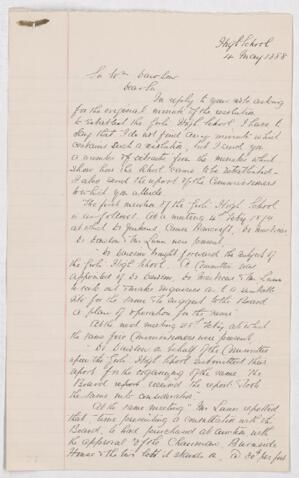 High School
4 May 1888
Sir Wm
Dear Sir
In reply to your note asking
for the original minute of the resolution
to establish the Girls High School I have to
say that I do not find any minute which
contains such a resolution, but I send you
a number of extracts from the minutes which
show how the School came to be established.
I also send the report of the Commissioners
to which you allude.
The first mention of the Girls High School
is as follows. At a meeting
at which Dr
Dr Dawson & Mr Lunn were present.
Dr Dawson brought forward the subject of
the Girls High School. A Committee was
appointed of Dr Dawson, & Mr Lunn
to look out & make inquiries as to a suitable
site for the same & to suggest to the Board
a plan of operation for the same"
At the next meeting 25th Feby at which
the same five Commissioners were present
Dr Dawson on behalf of the Committee
upon the Girls High School submitted their
report for the organizing of the same. The
Board report received the report & took
the same into consideration"
At the same meeting "Mr Lunn reported
that time preventing a consultation with the
Board, he had purchased at auction with
the approval of the Chairman Burnside
House & the two lots it stands